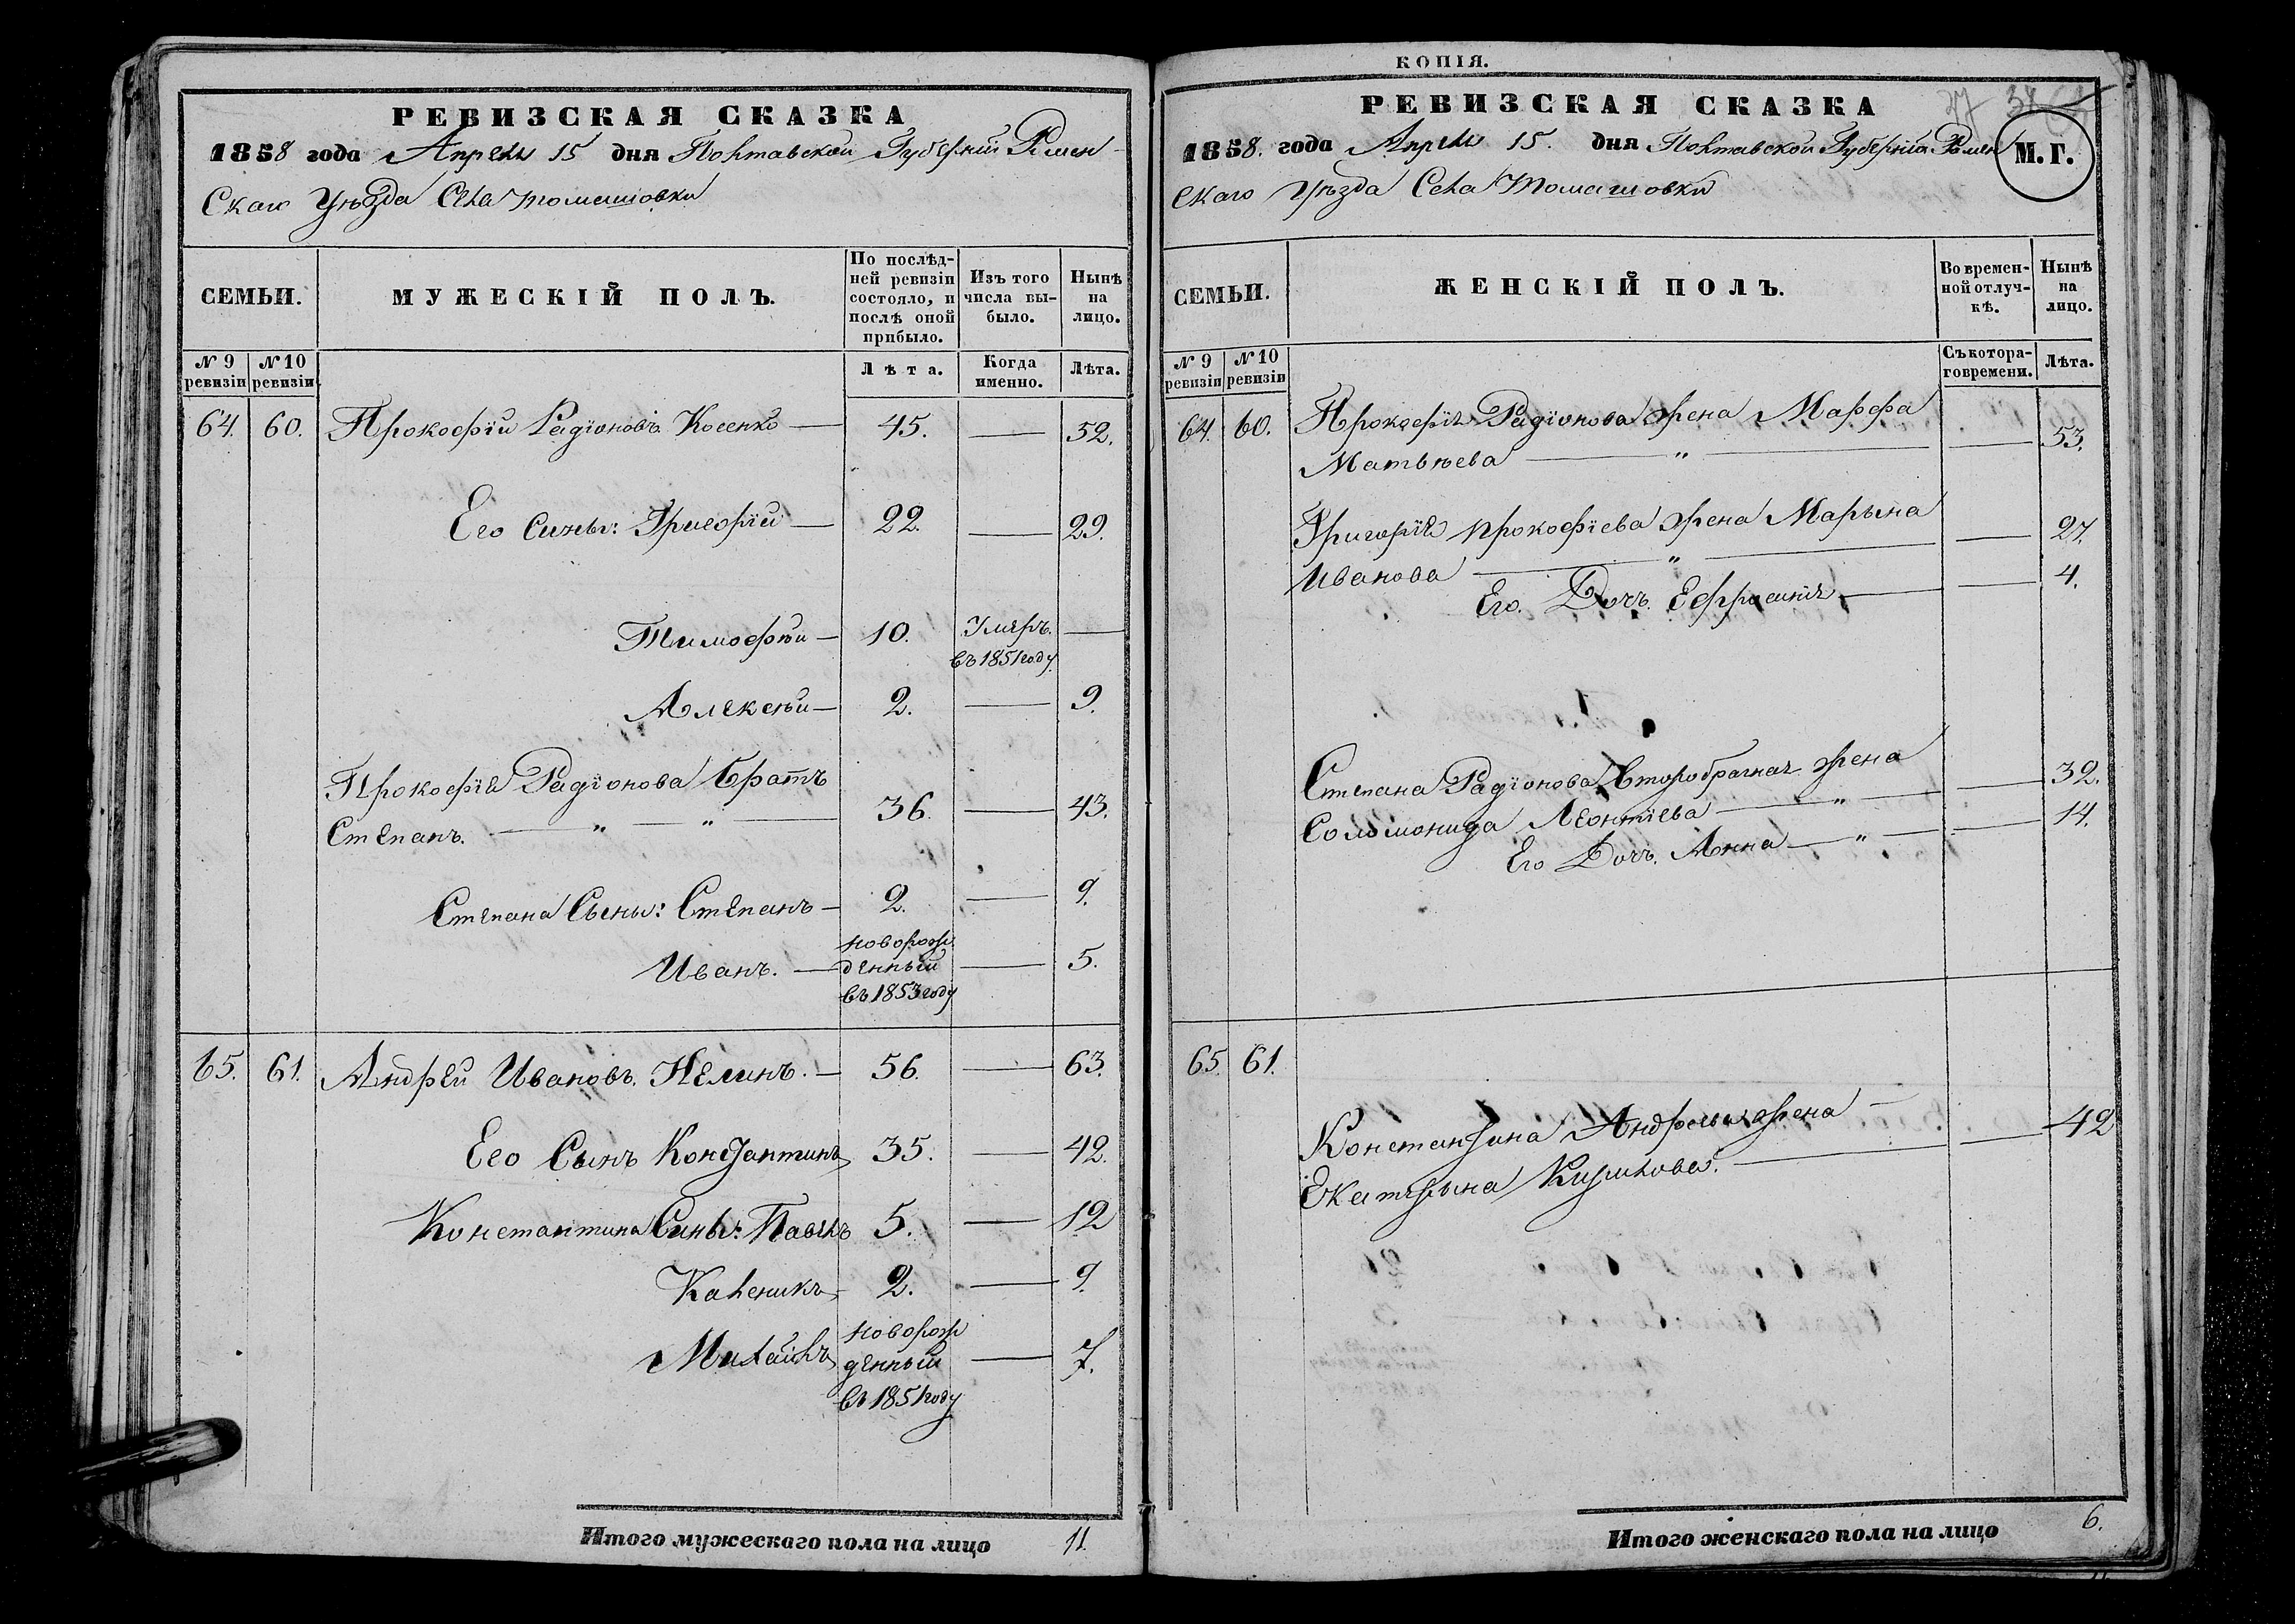 РЕВИЗСКАЯ СКАЗКА
1858 года Апреля 15 дня Полтавской Губерніи Ромен-
скаго Уѣзда Села Томашовки
СЕМЬИ.
МУЖЕСКІЙ ПОЛЪ.
По послѣд-
ней ревизіи
состояло, и
послѣ оной
прибыло.
Изъ того
числа вы-
было.
Нынѣ
на
лицо.
№ 9
ревизіи
№ 10
ревизіи
Лѣта.
Когда
именно.
Лѣта.
64. 60. Прокофій Радіоновъ Косенко — 45. — 52.
Его Сины: Григорій — 22. — 29.
Тимофѣй — 10. Умеръ —
въ 1851 году
Алексѣй — 2. — 9.
Прокофія Радіонова Братъ
Степанъ. — „ — „ — 36. — 43.
Степана Сыны: Степанъ — 2. — 9.
Иванъ. — новорож
денный — 5.
въ 1853 году
65. 61. Андрей Ивановъ Нелинъ. — 56. — 63.
Его Сынъ Константинъ 35. — 42.
Константина Сины: Павелъ 5. — 12
Каленикъ 2. — 9.
Михаилъ новорож
денный — 7.
въ 1851 году
Итого мужескаго пола на лицо 11.
КОПІЯ.
РЕВИЗСКАЯ СКАЗКА
1858. года Апреля 15. дня Полтавской Губерніи Ромен
М. Г.
скаго Уѣзда Села Томашовки
СЕМЬИ.
ЖЕНСКІЙ ПОЛЪ.
Во времен-
ной отлуч-
кѣ.
Нынѣ
на
лицо.
№ 9
ревизіи
№ 10
ревизіи
Съ котора-
го времени.
Лѣта.
64. 60. Прокофія Радіонова жена Марфа
Матвѣева — „ — — 53.
Григорія Прокофіева жена Марьина
Иванова — „ — — 27.
Его. Дочь. Ефросинія — — 4.
Степана Радіонова Второбрачная жена
Соломонида Леонтіева — „ — — 32.
Его Дочь. Анна — „ — — 14.
65. 61.
Константина Андреева жена —
Екатерына Кирилова. — — 42
Итого женскаго пола на лицо 6.